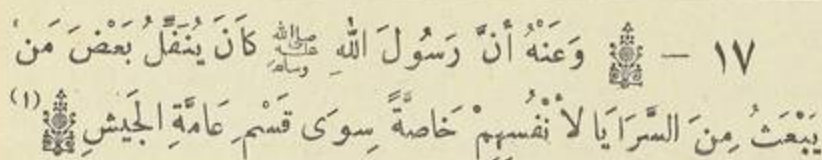 ١٧ – وَعَنْهُ أَنَّ رَسُولَ اللهِ ﷺ كَانَ يُنَفِّلُ بَعْضَ مَنْ
يَبْعَثُ مِنَ السَّرَايَا لأَنْفُسِهِمْ خَاصَّةً سِوَى قَسْمِ عَامَّةِ الجَيشِ (١)